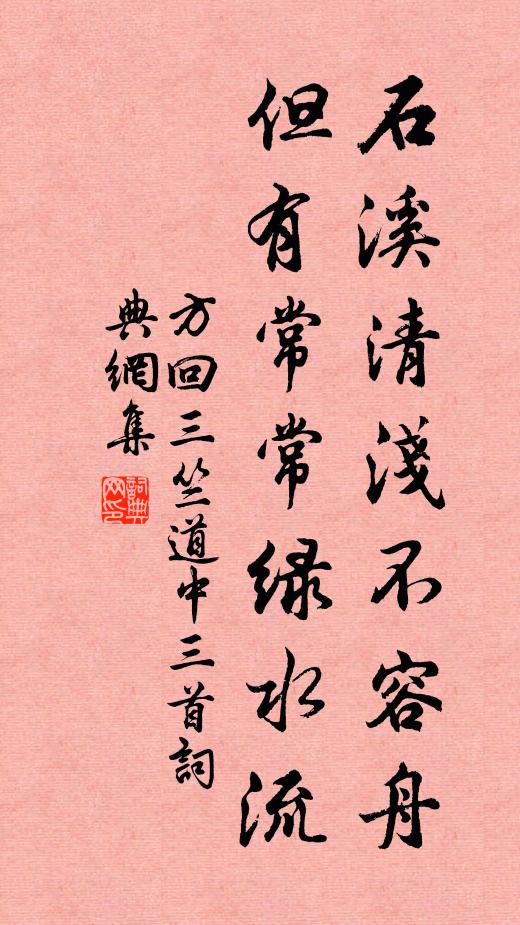 石溪清淺不容舟
但有常常绿水流
方回三竺道中三首詞
典網集
詞典网印